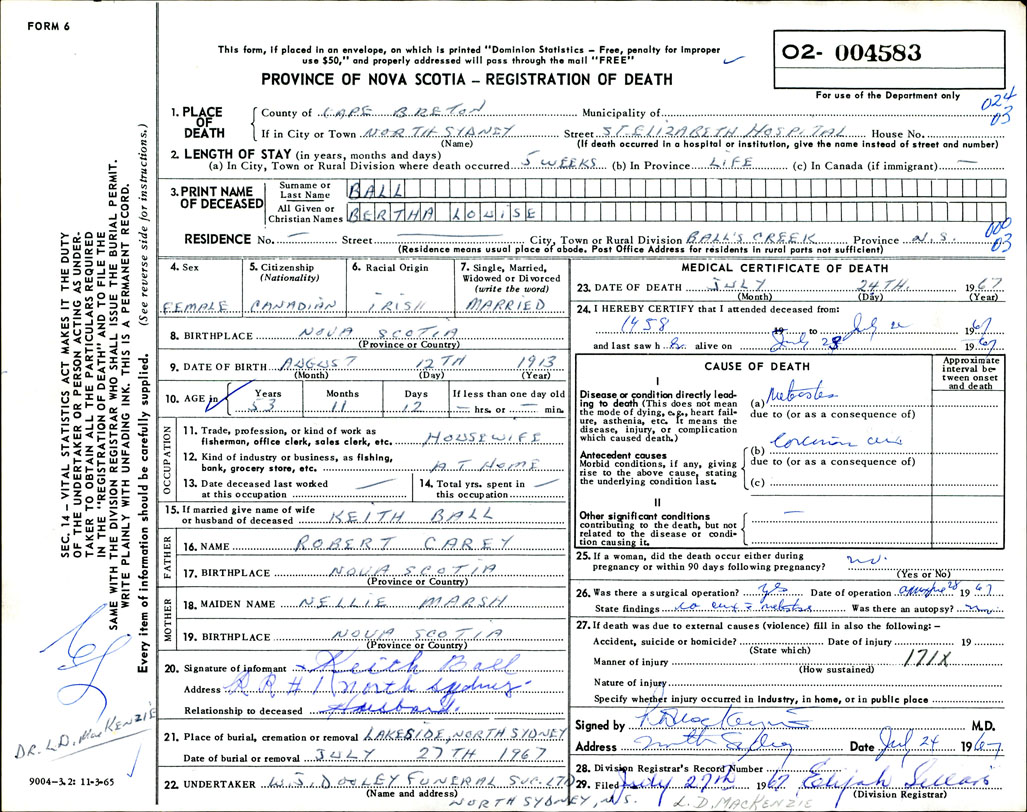 FORM 6
This form, if placed in an envelope, on which is printed "Dominion Statistics – Free, penalty for improper
use $50," and properly addressed will pass through the mail "FREE"
PROVINCE OF NOVA SCOTIA – REGISTRATION OF DEATH
02- 004583
For use of the Department only
024
03
1. PLACE OF DEATH
County of CAPE BRETON Municipality of
If in City or Town NORTH SYDNEY Street ST. ELIZABETH HOSPITAL House No.
(Name) (If death occurred in a hospital or institution, give the name instead of street and number)
2. LENGTH OF STAY (in years, months and days)
(a) In City, Town or Rural Division where death occurred 5 WEEKS (b) In Province LIFE (c) In Canada (if immigrant) —
3. PRINT NAME OF DECEASED
Surname or Last Name BALL
All Given or Christian Names BERTHA LOUISE
000
03
RESIDENCE No. — Street — City, Town or Rural Division BALL'S CREEK Province N.S.
(Residence means usual place of abode. Post Office Address for residents in rural parts not sufficient)
4. Sex
FEMALE
5. Citizenship
(Nationality)
CANADIAN
6. Racial Origin
IRISH
7. Single, Married,
Widowed or Divorced
(write the word)
MARRIED
8. BIRTHPLACE NOVA SCOTIA
(Province or Country)
9. DATE OF BIRTH AUGUST 12TH 1913
(Month) (Day) (Year)
10. AGE in
Years Months Days If less than one day old
53 11 12 — hrs. or — min.
OCCUPATION
11. Trade, profession, or kind of work as
fisherman, office clerk, sales clerk, etc. HOUSEWIFE
12. Kind of industry or business, as fishing,
bank, grocery store, etc. AT HOME
13. Date deceased last worked
at this occupation —
14. Total yrs. spent in
this occupation —
15. If married give name of wife
or husband of deceased KEITH BALL
FATHER
16. NAME ROBERT CAREY
17. BIRTHPLACE NOVA SCOTIA
(Province or Country)
MOTHER
18. MAIDEN NAME NELLIE MARSH
19. BIRTHPLACE NOVA SCOTIA
(Province or Country)
20. Signature of informant Keith Ball
Address R R # 1 North Sydney
Relationship to deceased Husband.
21. Place of burial, cremation or removal LAKESIDE, NORTH SYDNEY
Date of burial or removal JULY 27TH 1967
22. UNDERTAKER W.J. DOOLEY FUNERAL SVC. LTD
(Name and address)
NORTH SYDNEY, N.S.
MEDICAL CERTIFICATE OF DEATH
23. DATE OF DEATH JULY 24TH. 1967
(Month) (Day) (Year)
24. I HEREBY CERTIFY that I attended deceased from:
1958 19 to July 1967
and last saw h er alive on July 23 1967
CAUSE OF DEATH
Approximate
interval between
onset
and death
I
Disease or condition directly leading
to death (This does not mean
the mode of dying, e.g., heart failure,
asthenia, etc. It means the
disease, injury, or complication
which caused death.)
(a)
due to (or as a consequence of)
Antecedent causes
Morbid conditions, if any, giving
rise to the above cause, stating
the underlying condition last.
(b)
due to (or as a consequence of)
(c)
II
Other significant conditions
contributing to the death, but not
related to the disease or condition
causing it. —
25. If a woman, did the death occur either during
pregnancy or within 90 days following pregnancy? no.
(Yes or No)
26. Was there a surgical operation? yes Date of operation 28 1967
State findings Was there an autopsy? no
27. If death was due to external causes (violence) fill in also the following:–
Accident, suicide or homicide? Date of injury 19
(State which)
Manner of injury 171X
(How sustained)
Nature of injury
Specify whether injury occurred in Industry, in home, or in public place
Signed by L D MacKenzie M.D.
Address North Sydney Date Jul 24 1967
28. Division Registrar's Record Number
29. Filed July 27th 1967 Elijah
(Division Registrar)
L. D. MACKENZIE
SEC. 14 – VITAL STATISTICS ACT MAKES IT THE DUTY
OF THE UNDERTAKER OR PERSON ACTING AS UNDERTAKER
TO OBTAIN ALL THE PARTICULARS REQUIRED
IN THE "REGISTRATION OF DEATH" AND TO FILE THE
SAME WITH THE DIVISION REGISTRAR WHO SHALL ISSUE THE BURIAL PERMIT.
WRITE PLAINLY WITH UNFADING INK. THIS IS A PERMANENT RECORD.
Every item of information should be carefully supplied. (See reverse side for instructions.)
DR. L.D. MACKENZIE
9004-3.2: 11-3-65